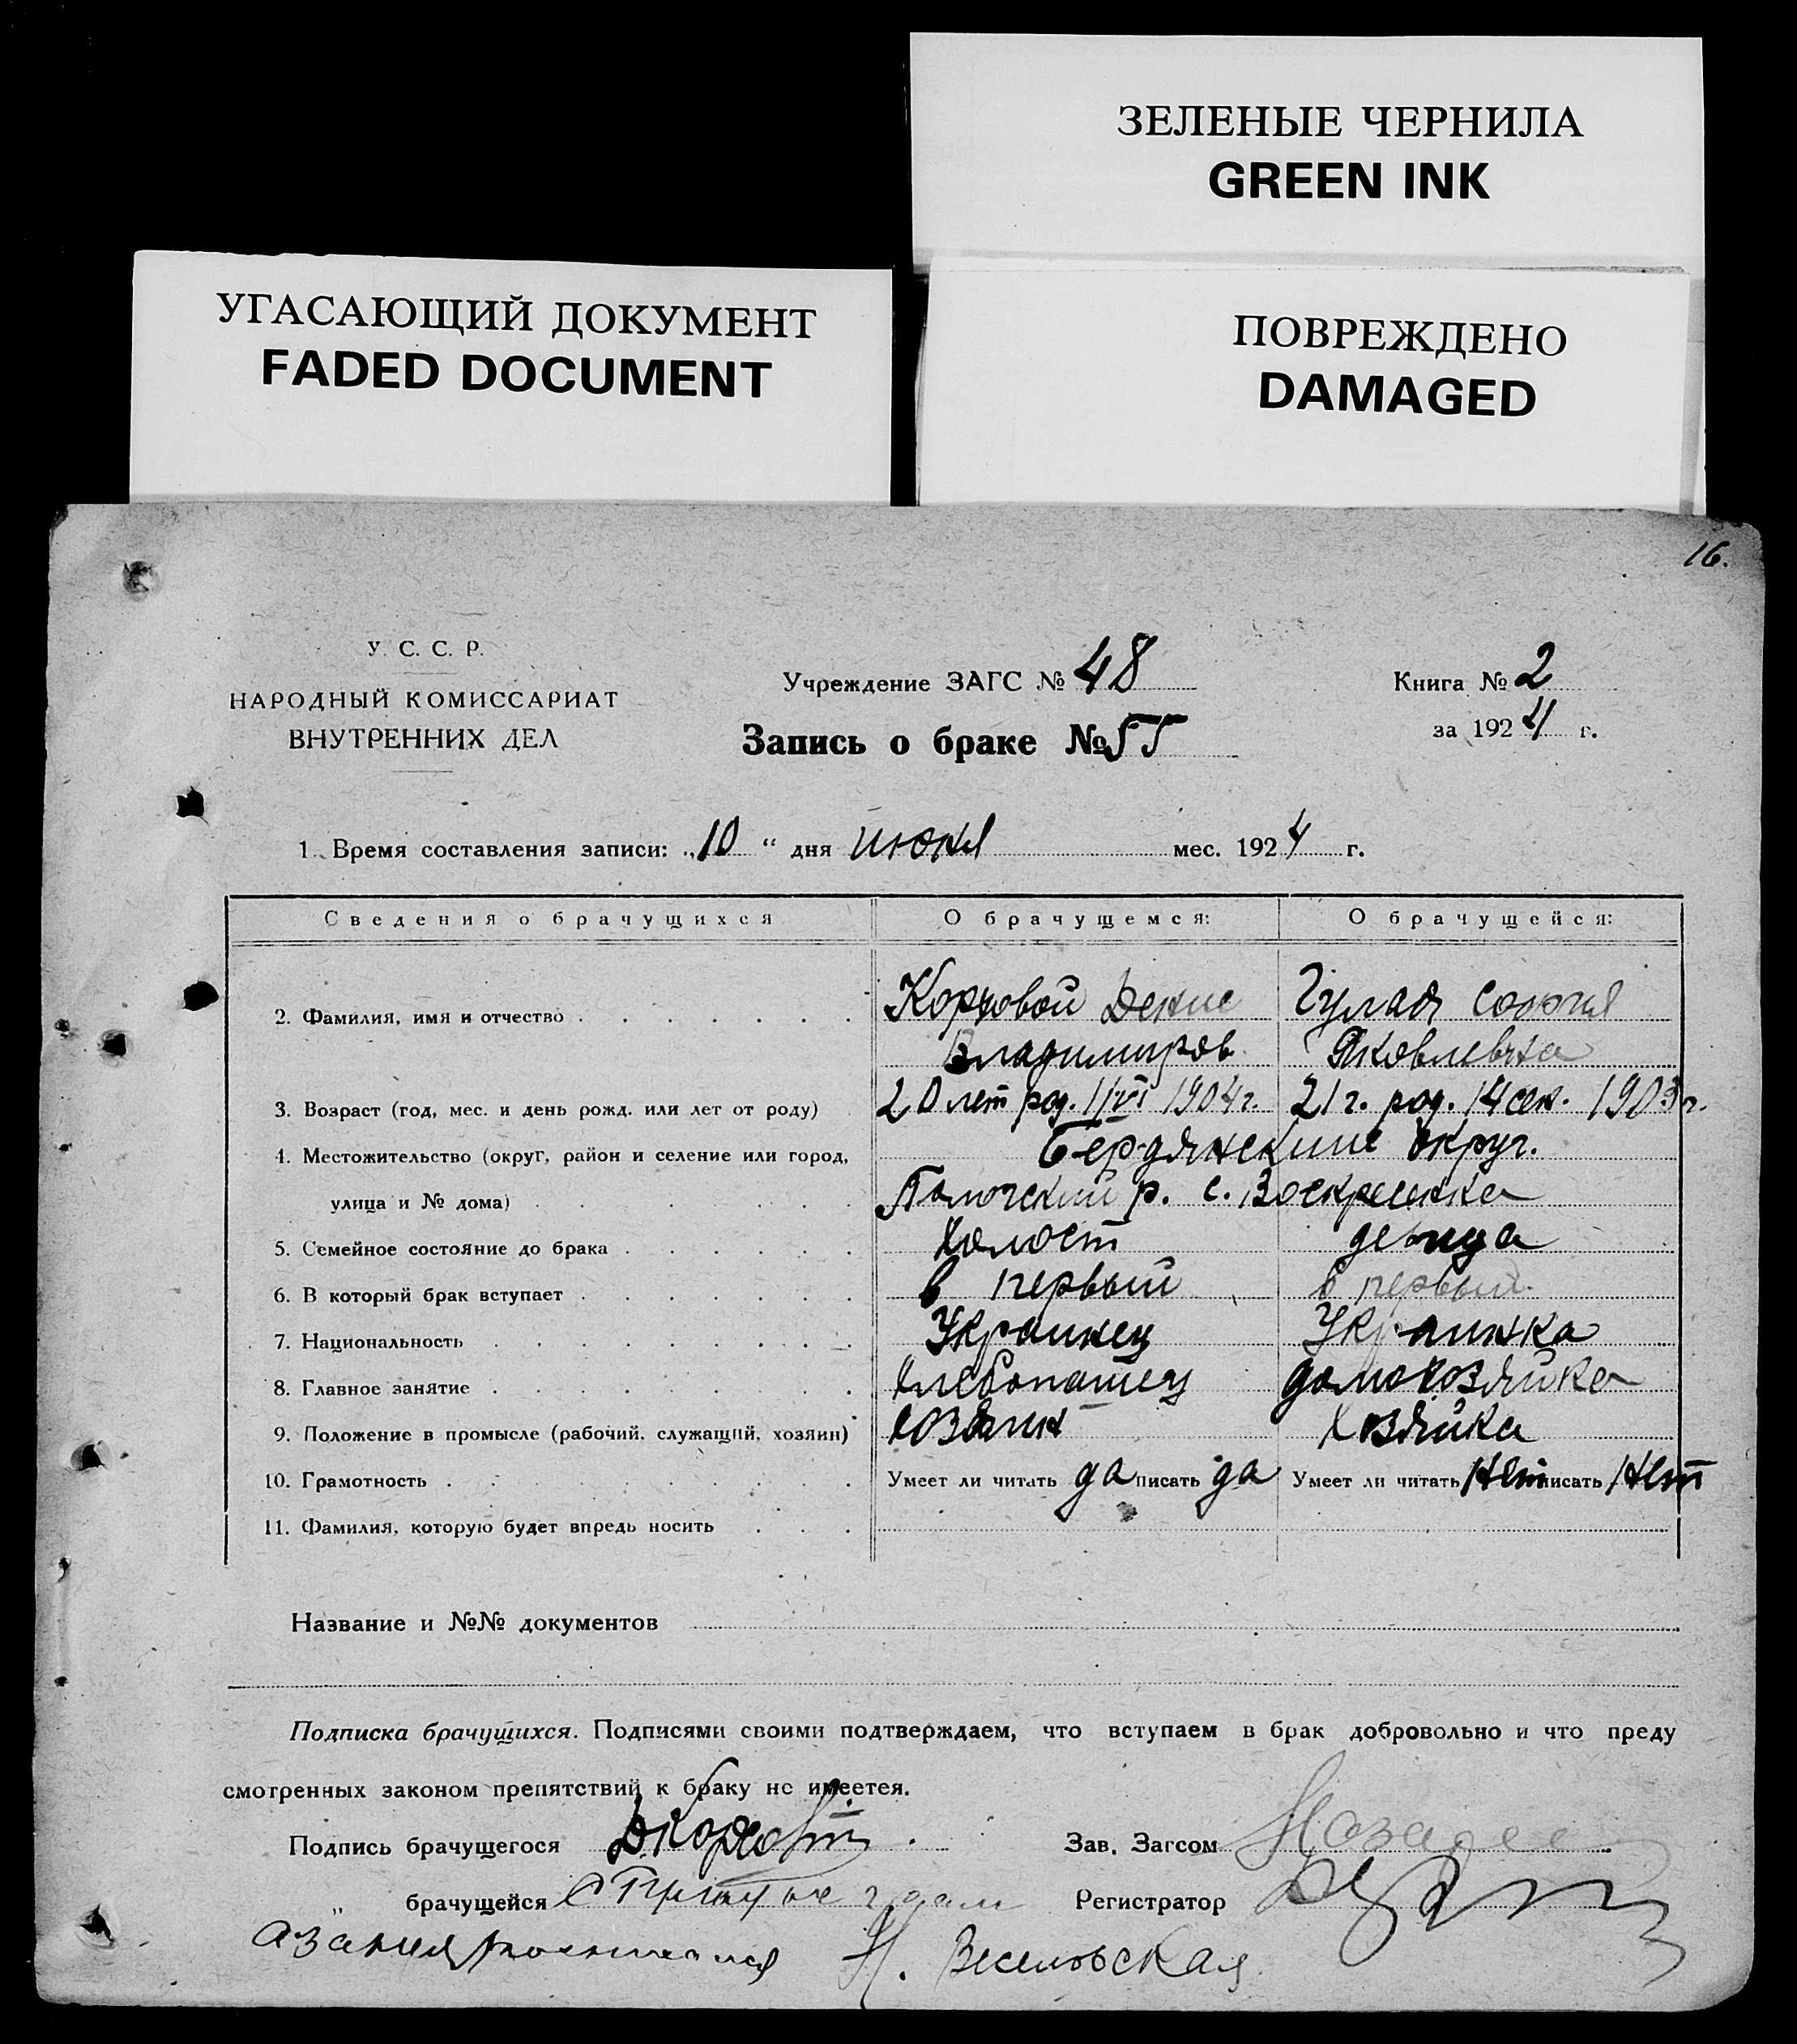 ЗЕЛЕНЫЕ ЧЕРНИЛА
GREEN INK
УГАСАЮЩИЙ ДОКУМЕНТ
FADED DOCUMENT
ПОВРЕЖДЕНО
DAMAGED
16.
У. С. С. Р.
НАРОДНЫЙ КОМИССАРИАТ
ВНУТРЕННИХ ДЕЛ
Учреждение ЗАГС № 48
Запись о браке № 55
Книга № 2
за 1924 г.
1. Время составления записи: „10“ дня июня мес. 1924 г.
Сведения о брачущихся О брачущемся: О брачущейся:
2. Фамилия, имя и отчество Корховой Денис Гулай София
Владимиров Яковлевна
3. Возраст (год, мес. и день рожд. или лет от роду) 20 лет род. 11/VI 1904 г. 21 г. род. 14 сен. 1903 г.
4. Местожительство (округ, район и селение или город, Бердянский округ.
улица и № дома) р. с. Воскресенка
5. Семейное состояние до брака холост девица
6. В который брак вступает в первый в первый
7. Национальность Украинец Украинка
8. Главное занятие хлебопашец домохозяйка
9. Положение в промысле (рабочий, служащий, хозяин) хозяин хозяйка
10. Грамотность Умеет ли читать да писать да Умеет ли читать нет писать нет
11. Фамилия, которую будет впредь носить
Название и №№ документов
Подписка брачущихся. Подписями своими подтверждаем, что вступаем в брак добровольно и что преду
смотренных законом препятствий к браку не имеется.
Подпись брачущегося Зав. Загсом
„ брачущейся Регистратор
Н. Веселовская